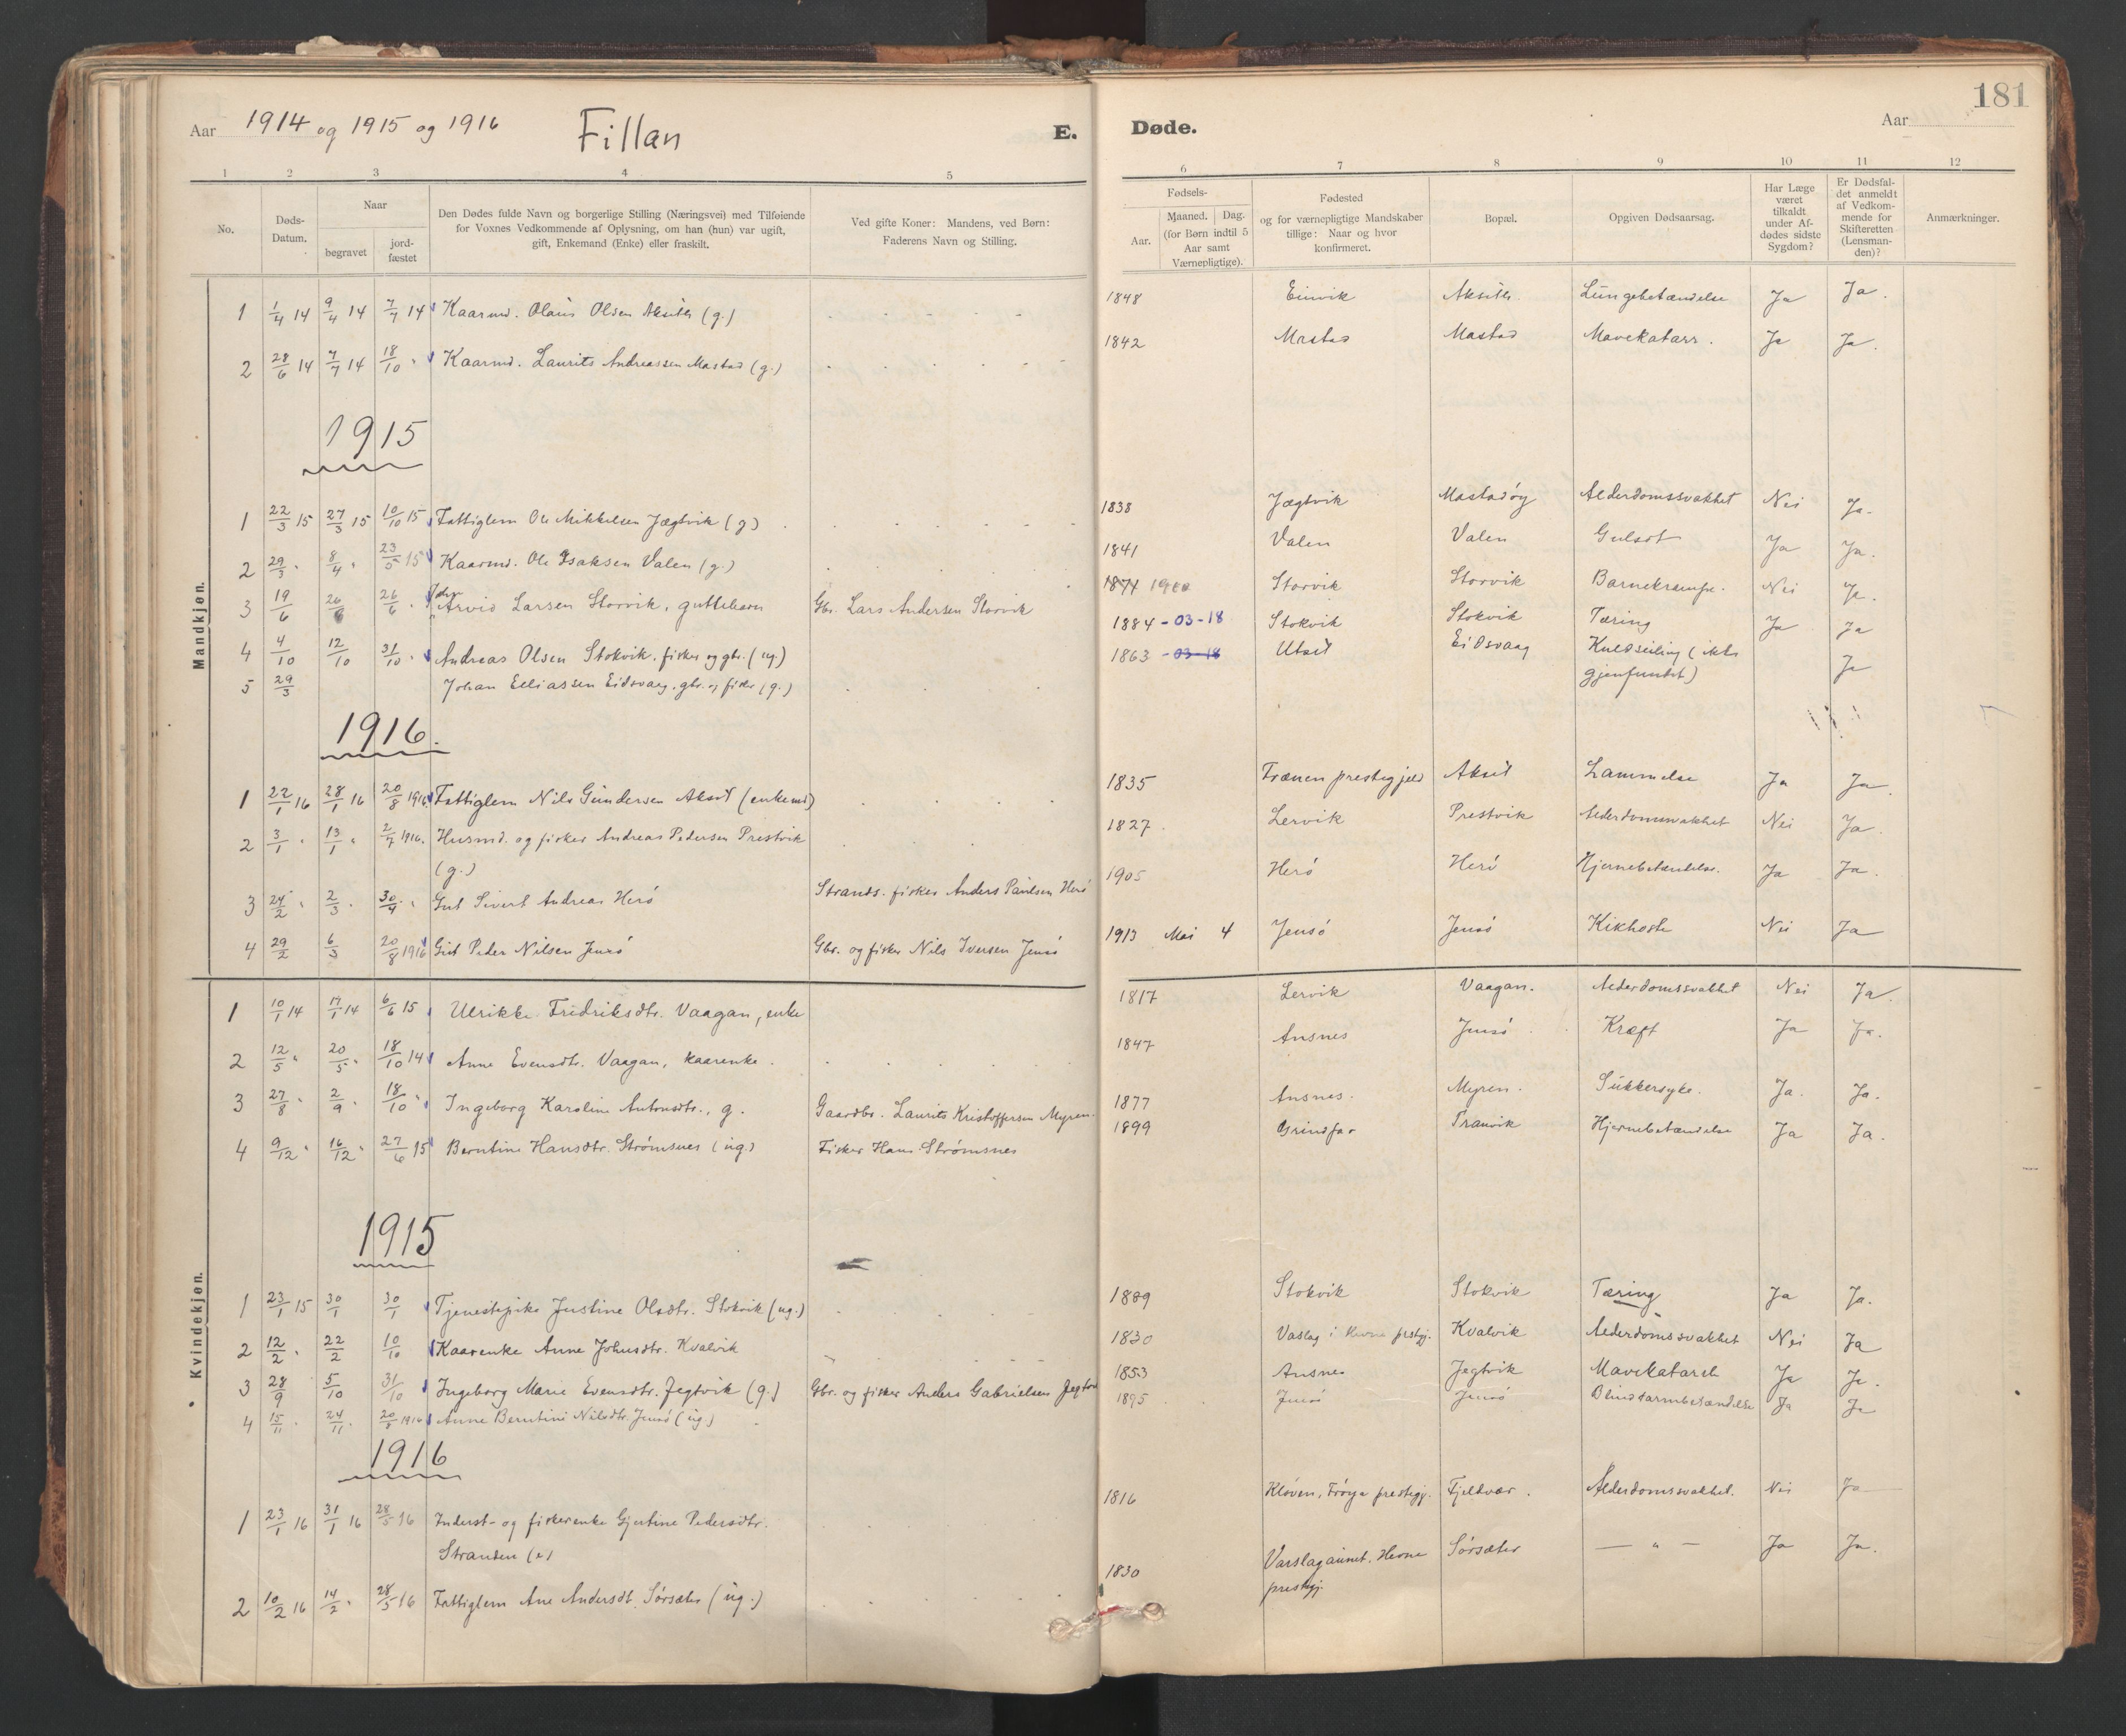 181
Aar 1914 og 1915 og 1916 Fillan E. Døde. Aar
1 2 3 4 5 6 7 8 9 10 11 12
No.
Døds-Datum.
Naar
begravet
jord-fæstet
Den Dødes fulde Navn og borgerlige Stilling (Næringsvei) med Tilføiende
for Voxnes Vedkommende af Oplysning, om han (hun) var ugift,
gift, Enkemand (Enke) eller fraskilt.
Ved gifte Koner: Mandens, ved Børn:
Faderens Navn og Stilling.
Fødsels-
Aar.
Maaned. Dag.
(for Børn indtil 5
Aar samt
Værnepligtige).
Fødested
og for værnepligtige Mandskaber
tillige: Naar og hvor
konfirmeret.
Bopæl.
Opgiven Dødsaarsag.
Har Læge
været
tilkaldt
under Af-
dødes sidste
Sygdom?
Er Dødsfal-
det anmeldt
af Vedkom-
mende for
Skifteretten
(Lensman-
den)?
Anmærkninger.
Mandkjøn.
1 1/4 14 9/4 14 7/7 14 Kaarmd. Olaus Olsen Aksith (g.) 1848 Einvik Aksith. Lungebetændelse Ja Ja.
2 28/6 14 7/7 14 18/10 " Kaarmd. Laurits Andreassen Mastad (g.) 1842 Mastad Mastad Mavekatarr. Ja Ja.
1915
1 22/3 15 27/3 15 10/10 15 Fattiglem Ole Mikkelsen Jægtvik (g) 1838 Jægtvik Mastadøy Alderdomssvakhet Nei Ja.
2 29/3 " 8/4 " 23/5 15 Kaarmd. Ole Isaksen Valen (g.) 1841 Valen Valen Gulsot Ja Ja.
3 19/6 26/6 26/6 " Arvid Larsen Storvik, guttebarn Gbr. Lars Andersen Storvik 1874 Storvik Storvik Barnekrampe. Nei Ja.
4 4/10 12/10 31/10 " Andreas Olsen Stokvik, fisker og gbr. (ug.) 1884 - 03 - 18 Stokvik Stokvik Tæring Ja Ja
5 29/3 Johan Elliassen Eidsvaag, gbr. og fisker (g.) 1863 - 03-18 Utset Eidsvaag Kuldseiling (ikke
gjenfundet) Ja
1916.
1 22/1 16 28/1 16 20/8 1916 Fattiglem Nils Gundersen Akset (enkemd) 1835 Frænen prestegjeld Akset Lammelse Ja Ja.
2 3/1 " 13/1 " 2/7 1916. Husmd. og fisker Andreas Pedersen Prestvik
(g.) 1827. Lervik Prestvik Alderdomssvakhet Nei Ja.
3 24/2 " 2/3 " 30/4 " Gut Sivert Andreas Herø Strands. fisker Anders Paulsen Herø 1905 Herø Herø Hjernebetændelse. Ja Ja.
4 29/2 6/3 20/8 1916 Gut Peder Nilsen Jensø Gbr. og fisker Nils Iversen Jensø 1913 Mai 4 Jensø Jensø Kikhoste Nei Ja
Kvindekjøn.
1 10/1 14 17/1 14 6/6 15 Ulrikke Fredriksdtr. Vaagan, enke 1817 Lervik Vaagan. Alderdomssvakhet Nei Ja.
2 12/5 " 20/5 " 18/10 14 Anne Evensdtr. Vaagan, kaarenke. 1847 Ansnes Jensø Kræft Ja Ja.
3 27/8 " 2/9 " 18/10 " Ingeborg Karoline Antonsdtr., g. Gaardbr. Laurits Kristoffersen Myren. 1877 Ansnes. Myren. Sukkersyke. Ja. Ja.
4 9/12 " 16/12 " 27/6 15 Berntine Hansdtr. Strømsnes (ug.) Fisker Hans Strømsnes 1899 Grindfar Tranvik Hjernebetændelse Ja Ja.
1915
1 23/1 15 30/1 30/1 Tjenestepike Justine Olsdtr. Stokvik (ug.) 1889 Stokvik Stokvik Tæring Ja Ja.
2 12/2 " 22/2 10/10 Kaarenke Anne Johnsdtr. Kvalvik 1830 Vaslag i Hevne prstgj. Kvalvik Alderdomssvakhet Nei Ja
3 28/9 5/10 31/10 Ingeborg Marie Evensdtr. Jegtvik (g.) Gbr. og fisker Anders Gabrielsen Jegtvik 1853 Ansnes Jegtvik Mavekatarrh Ja Ja.
4 15/11 " 24/11 " 20/8 1916 Anne Berntine Nilsdtr. Jensø (ug.) 1895 Jensø Jensø Blindtarmbetændelse Ja Ja
1916
1 23/1 16 31/1 16 28/5 16 Inderst- og fiskerenke Gjertine Pedersdtr.
Stranden (e) 1816 Kløven, Frøya prestegj. Fjeldvær. Alderdomssvakhet. Nei Ja
2 10/2 16 14/2 " 28/5 16 Fattiglem Ane Andersdt. Sørsæter (ug.) 1830 Varslagaunet. Hevne
prestgj. Sørsæter — " — Ja Ja.